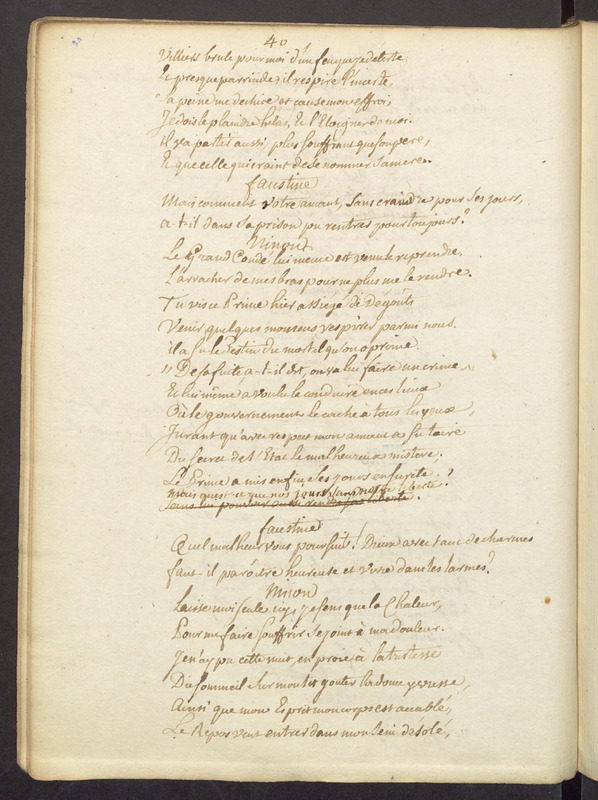 40
Villiers brule pour moi d'un feu que je deteste,
le presque parricide, il respire l'inceste,
Sa peine me dechire et cause mon effroi,
Je dois le plaindre helas, & l'Eloigner de moi.
il va partir aussi, plus souffrant que son pere,
& que celle qui craint de se nommer sa mere.
faustine
Mais comment votre amant, sans craindre pour ses jours,
a-t-il dans sa prison pu rentrer pour toujours?
Ninon
Le Grand Condé lui meme est venu le reprendre,
L'arracher de mes bras pour ne plus me le rendre.
Tu vis ce Prince hier assiegé de dégouts
Venir quelques momens respirer parmi nous.
il a su le destin du mortel qu'on opprime.
" De sa fuite a-t-il dit, on va lui faire un crime,
Et lui même a voulu le conduire en ces lieux
Où le gouvernement le cache à tous les yeux,
Jurant qu'avec respect mon amant a su taire
Du secret de l'Etat le malheureux mistere.
Le Prince a mis enfin ses jours en sureté.
mais qu'est-ce que nos jours sans notre liberté?
faustine
Quel malheur vous poursuit! Dieux avec tant de charmes
faut-il paroitre heureuse et vivre dans les larmes?
Ninon
Laisse moi seule ici, je sens que la Chaleur,
Pour me faire souffrir se joint à ma douleur.
Je n'ay pu cette nuit, en proie à la tristesse
Du sommeil sur mon lit gouter la douce yvresse,
Ainsi que mon Esprit mon corps est accablé,
Le Repos veut entrer dans mon sein désolé,